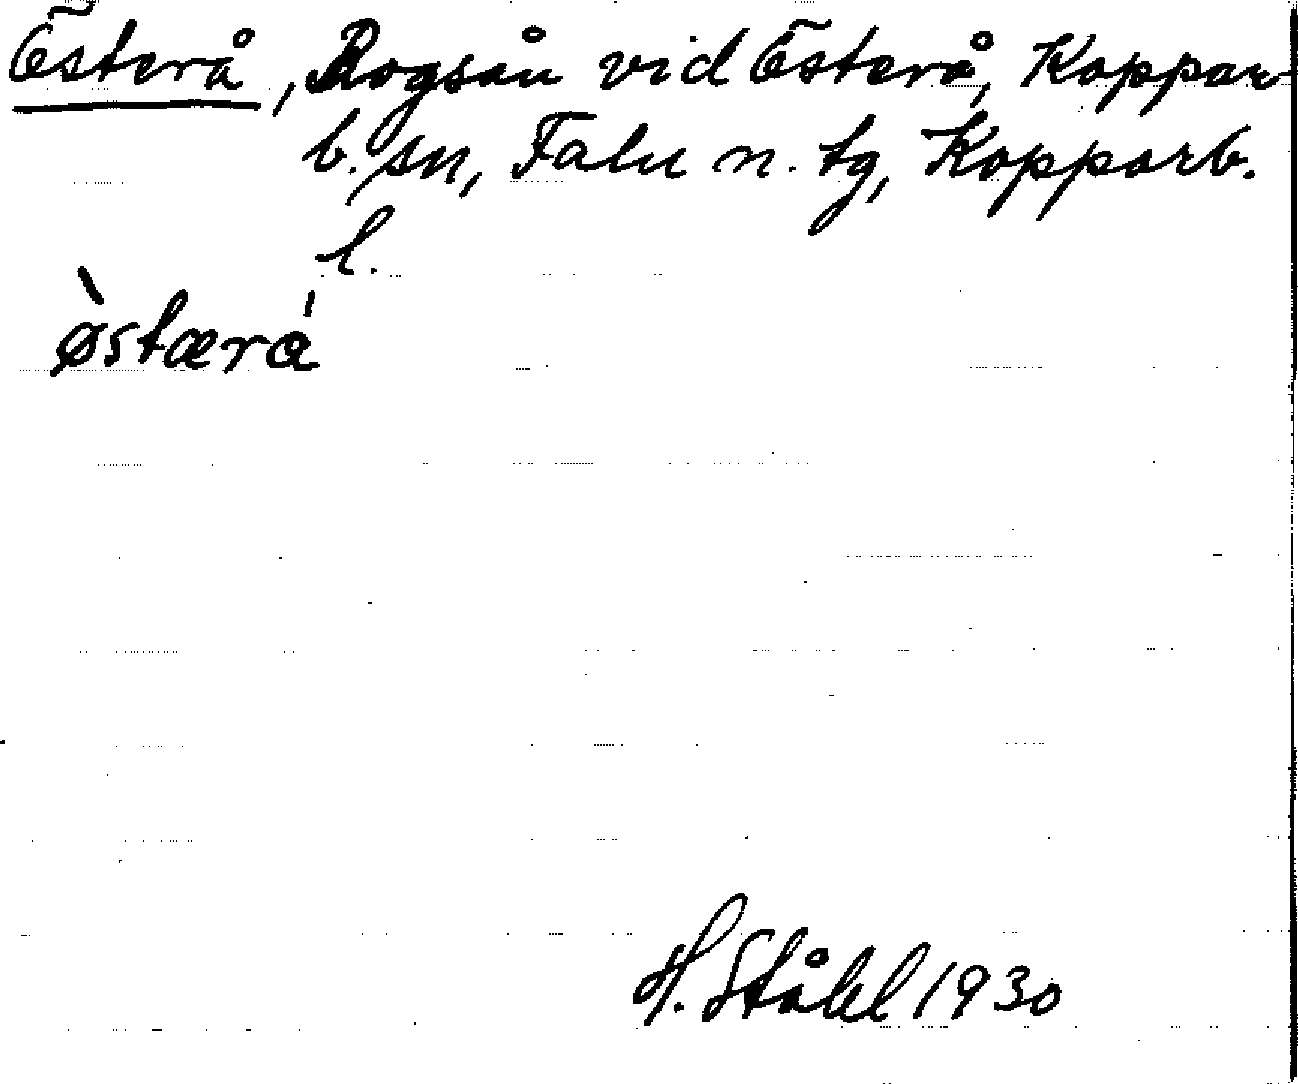 Österå, Rogsån vid Österå, Koppar-
b. sn, Falu n. tg, Kopparb.
l.
ø̀stærá
H. Ståhl 1930